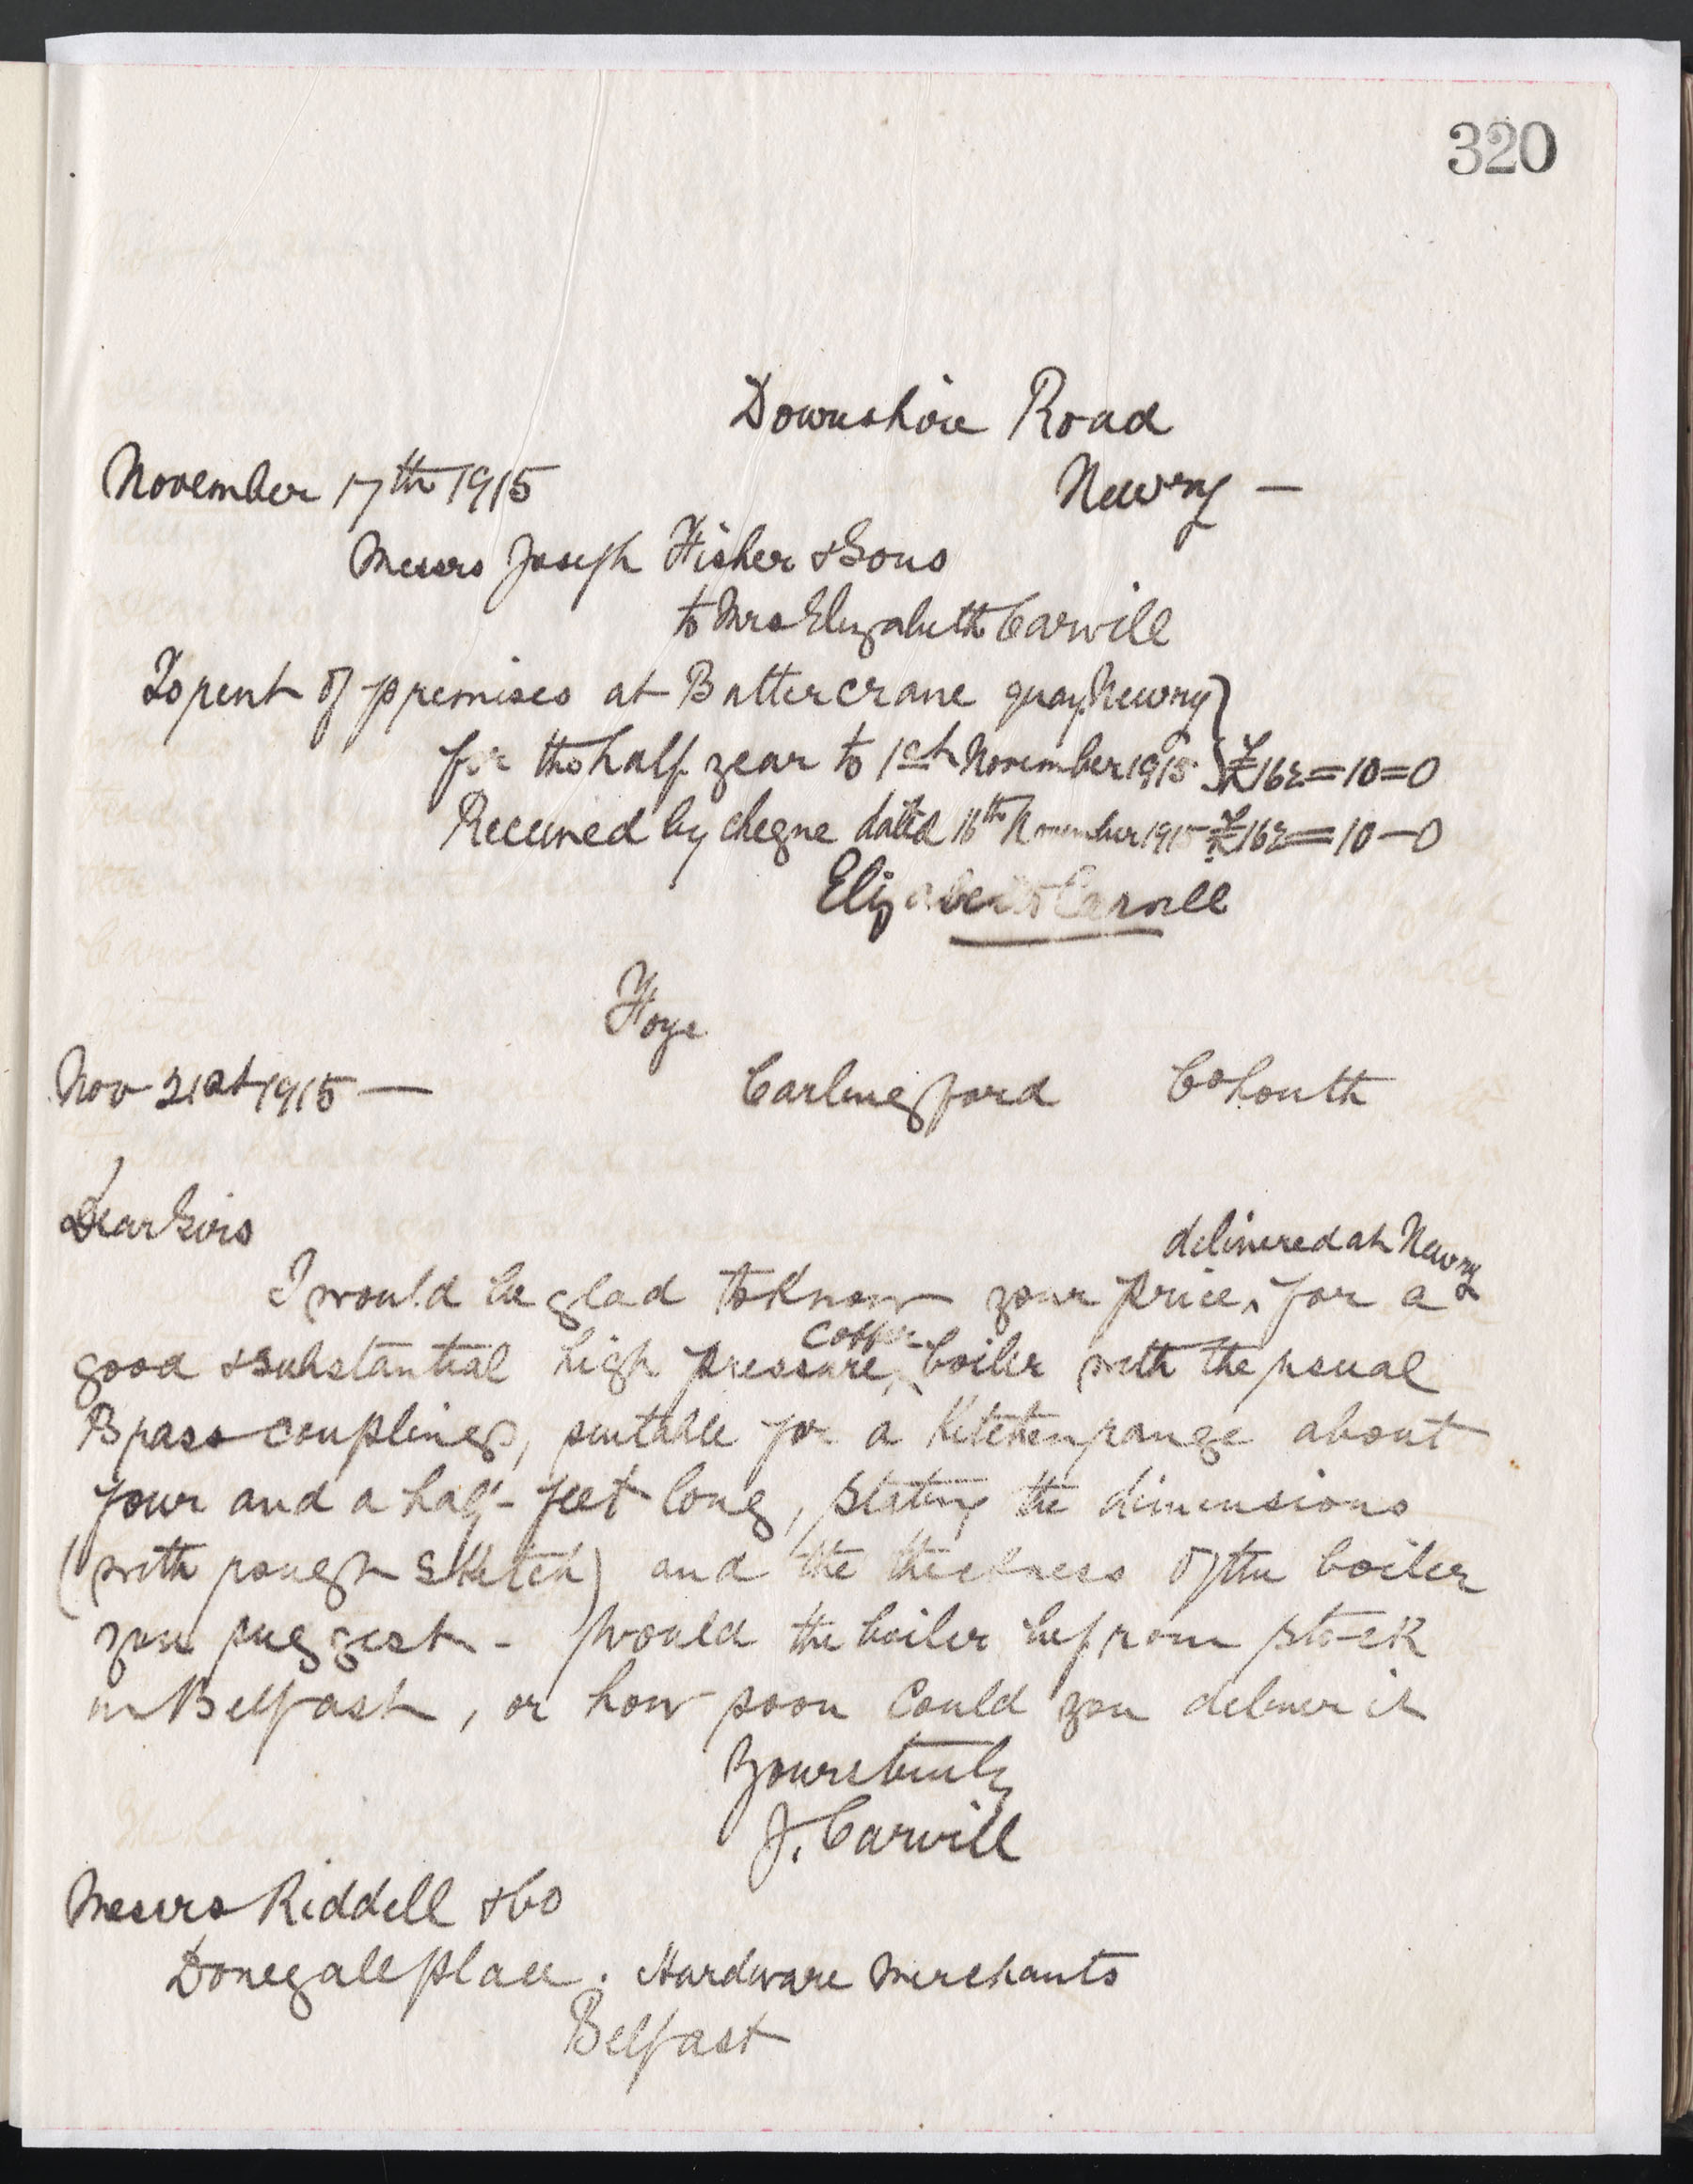 320
Downshire Road
November 17th 1915
Newry —
Messrs Joseph Fisher & Sons
to Mrs Elizabeth Carvill
To rent of premises at Buttercrane quay, Newry
for the half year to 1st November 1915 £162=10=0
Received by cheque dated 16th November 1915 £162=10-0
Elizabeth Carvill
Nov 21st 1915 —
Carlingford Co Louth
Dear Sirs
delivered at Newry
I would be glad to know your price, for a
copper
good & substantial high pressure boiler with the usual
Brass couplings, suitable for a Kitchen range about
four and a half feet long, stating the dimensions
(with rough sketch) and the thickness of the boiler
you suggest - Would the boiler be from stock
in Belfast, or how soon could you deliver it
Yours truly
J. Carvill
Messrs Riddell & Co
Donegall place. Hardware Merchants
Belfast